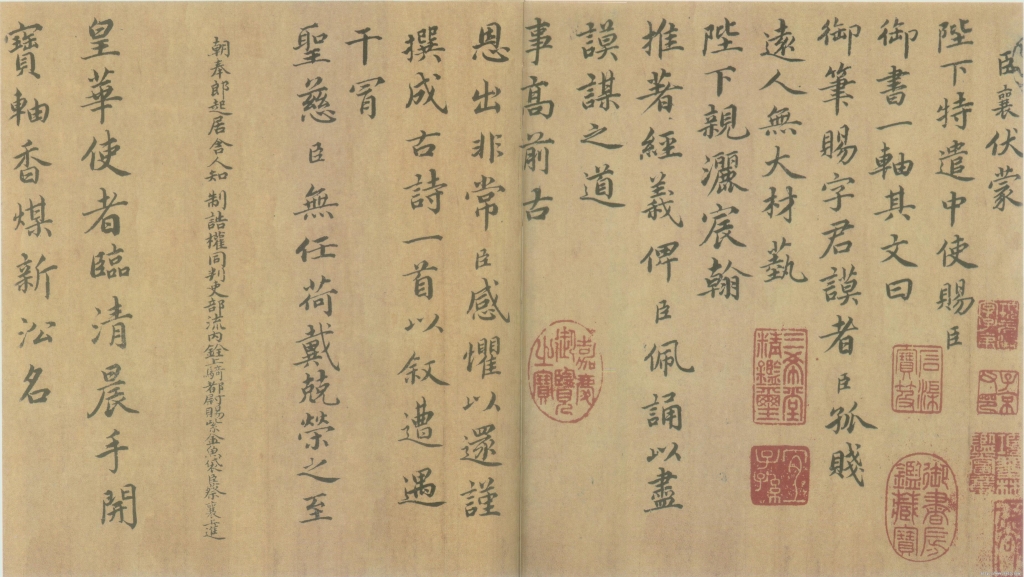 臣襄伏蒙
陛下特遣中使賜臣
御書一軸其文曰
御筆賜字君謨者臣孤賤
遠人無大材藝
陛下親灑宸翰
推著經義俾臣佩誦以盡
謨謀之道
事高前古
恩出非常臣感懼以還謹
撰成古詩一首以叙遭遇
干冒
聖慈臣無任荷戴兢榮之至
朝奉郎起居舍人知制誥權同判吏部流內銓騎都尉賜紫金魚袋臣蔡襄進
皇華使者臨清晨手開
寶軸香煤新沿名
嘉慶御覽之寶
三希堂精鑑璽
宜子孫
御書房鑑藏寶